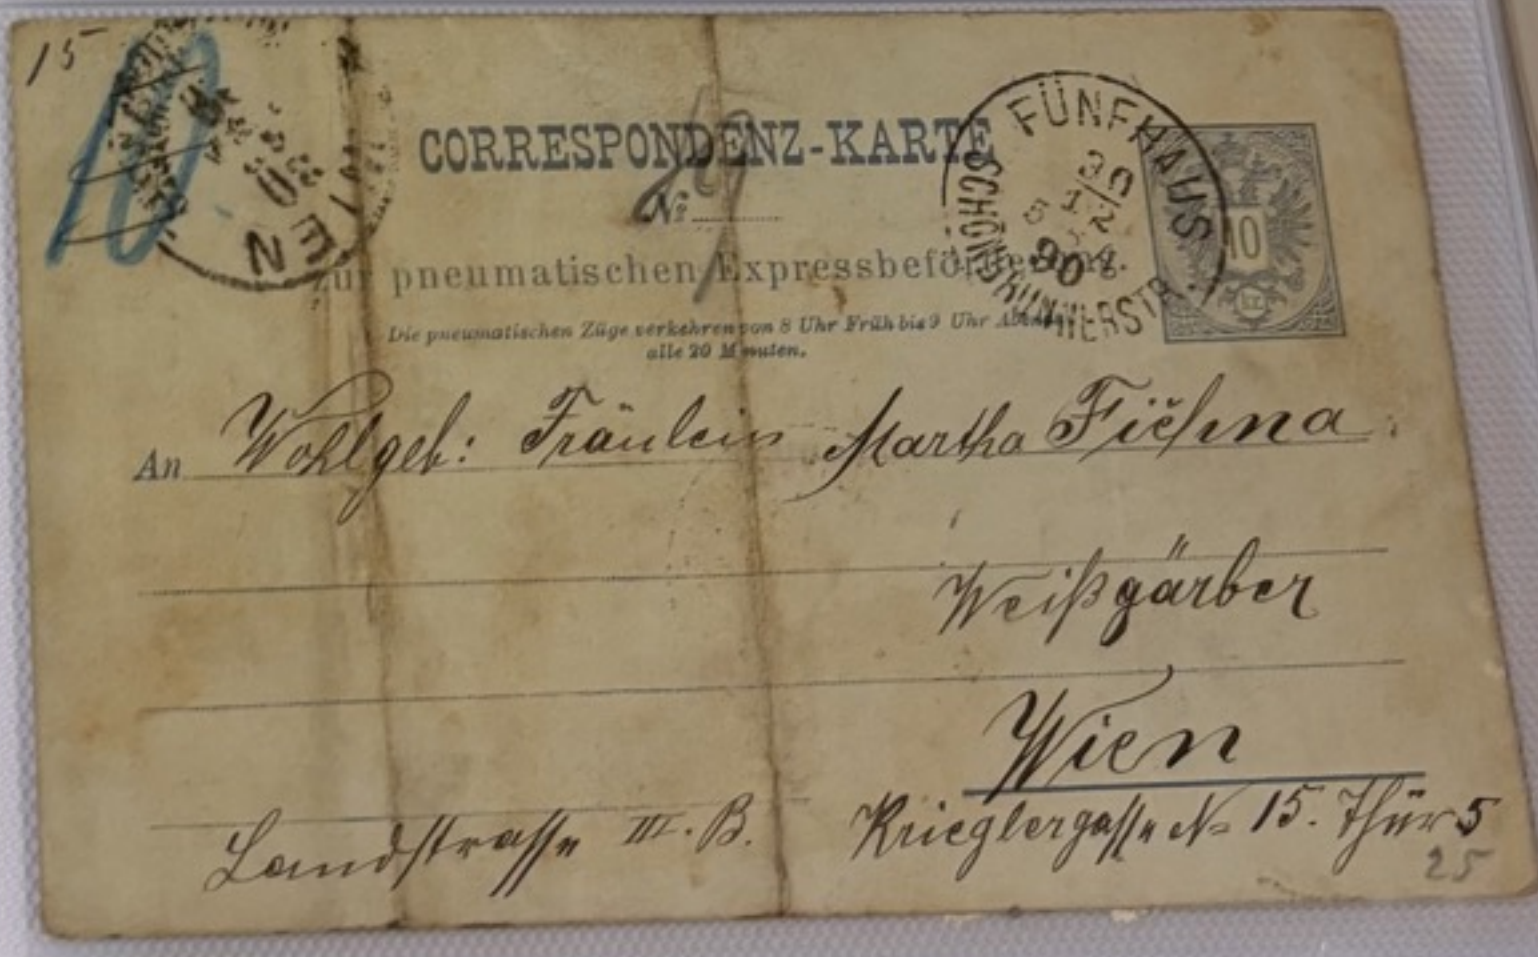 15
10
WIEN
CORRESPONDENZ-KARTE
No
19
FÜNFHAUS
SCHÖNBRUNNERSTR.
30
12
5
90
10
kr.
zur pneumatischen Expressbeförderung.
Die pneumatischen Züge verkehren von 8 Uhr Früh bis 9 Uhr Abends
alle 20 Minuten.
An Wohlgeb: Fräulein Martha
Weißgärber
Wien
Landstrasse III. B. Krieglergasse No 15. Thür 5
25